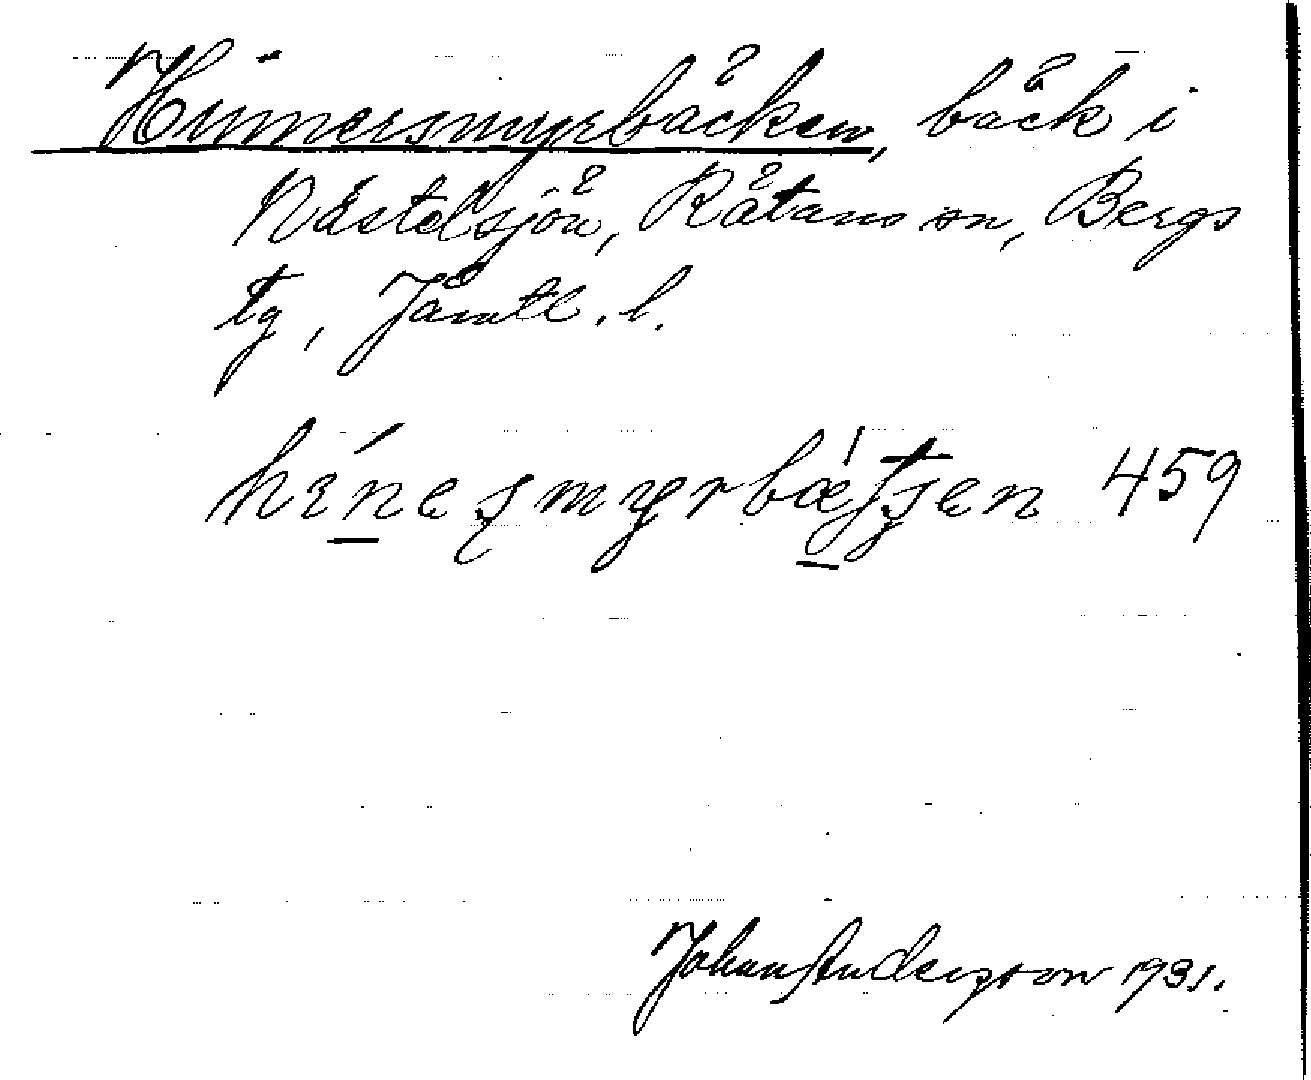 Hinnersmyrbäcken, bäck i
Nästelsjön, Rätans sn, Bergs
tg, Jämtl. l.
hɪneʂmyrbæʈʂen 459
Johan Anderson 1931.